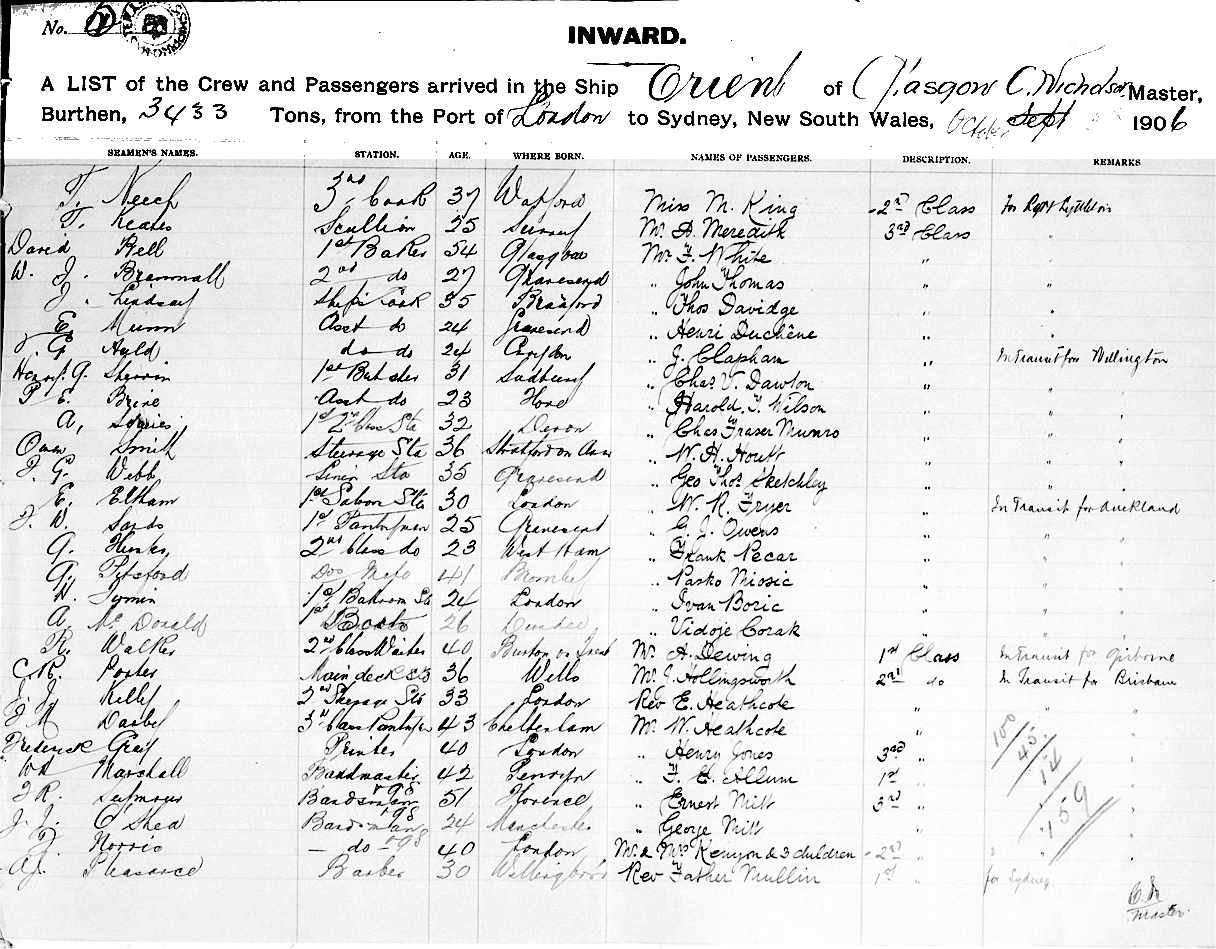 No.
INWARD.
A LIST of the Crew and Passengers arrived in the Ship Orient of Glasgow C. Nicholson Master,
Burthen, 3433 Tons, from the Port of London to Sydney, New South Wales, October Sept 1906
SEAMEN'S NAMES. STATION. AGE. WHERE BORN. NAMES OF PASSENGERS. DESCRIPTION. REMARKS
T. Neech 3rd Cook 37 Watford Miss M. King 2nd Class
T. Keates Scullion 25 Mr A. Meredith 3rd Class "
David Bell 1st Baker 54 Glasgow Mr F. White " "
W. J. 2nd do 27 Gravesend " John Thomas " "
J. Lindsay Ship's Cook 35 Bradford " Thos Davidge " "
E. Munn Asst do 24 Gravesend " Henri Duchêne " "
G. Auld do do 24 Croydon " J. Clapham " In Transit for Wellington
Henry G. Sherrin 1st Butcher 31 Sudbury " Chas V. Dawton " "
P. E. Brine Asst do 23 Hove " Harold T. Wilson " "
A. Squires 1st 2nd Class Sta 32 Devon " Chas Fraser Munro " "
Owen Smith Steerage Sta 36 Stratford on Avon " W. H. Houtt " "
F. G. Webb Linen Sto 35 Gravesend " Geo Thos Sketchley " "
E. Eltham 1st Saloon Sta 30 London " W. R. Fryer " In Transit for Auckland
J. W. Sands 1st Pantryman 25 Gravesend " E. J. Owens " "
G. 2nd Class do 23 West Ham " Frank Pecar " "
G. Titsford Dos Meto 41 Bromley " Pasko Miosic " "
W. Tymin 1st Bathroom Sta 24 London " Ivan Boric " "
A. McDonald 1st Boots 26 Dundee " Vidoje Corak " "
R. Walker 2nd Class Waiter 40 Burton on Trent Mr A. Dewing 1st Class In Transit for Gisborne
C. R. Porter Main deck Sto 36 Wells Mr J. Hollingsworth 2nd do In Transit for Brisbane
J. J. Kelly 2nd Steerage Sto 33 London Rev E. Heathcote " "
J. M. Darby 3rd Class Pantryman 43 Cheltenham Mr W. Heathcote " "
Frederick Gray Printer 40 London " Henry Jones 3rd " "
Wm Marshall Bandmaster 42 Penryn " F. E. Allum 1st " "
J. R. Seymour Bandsman 51 Florence " Ernest Mitt 3rd " "
J. J. O'Shea Bandsman 24 Manchester " George Mitt " "
J. Norris do 40 London Mr & Mrs Kenyon & 3 children 2nd " "
A. J. Pleasance Barber 30 Wellingboro Rev Father Mullin 1st " for Sydney
100
45
14
159
C. N
Master